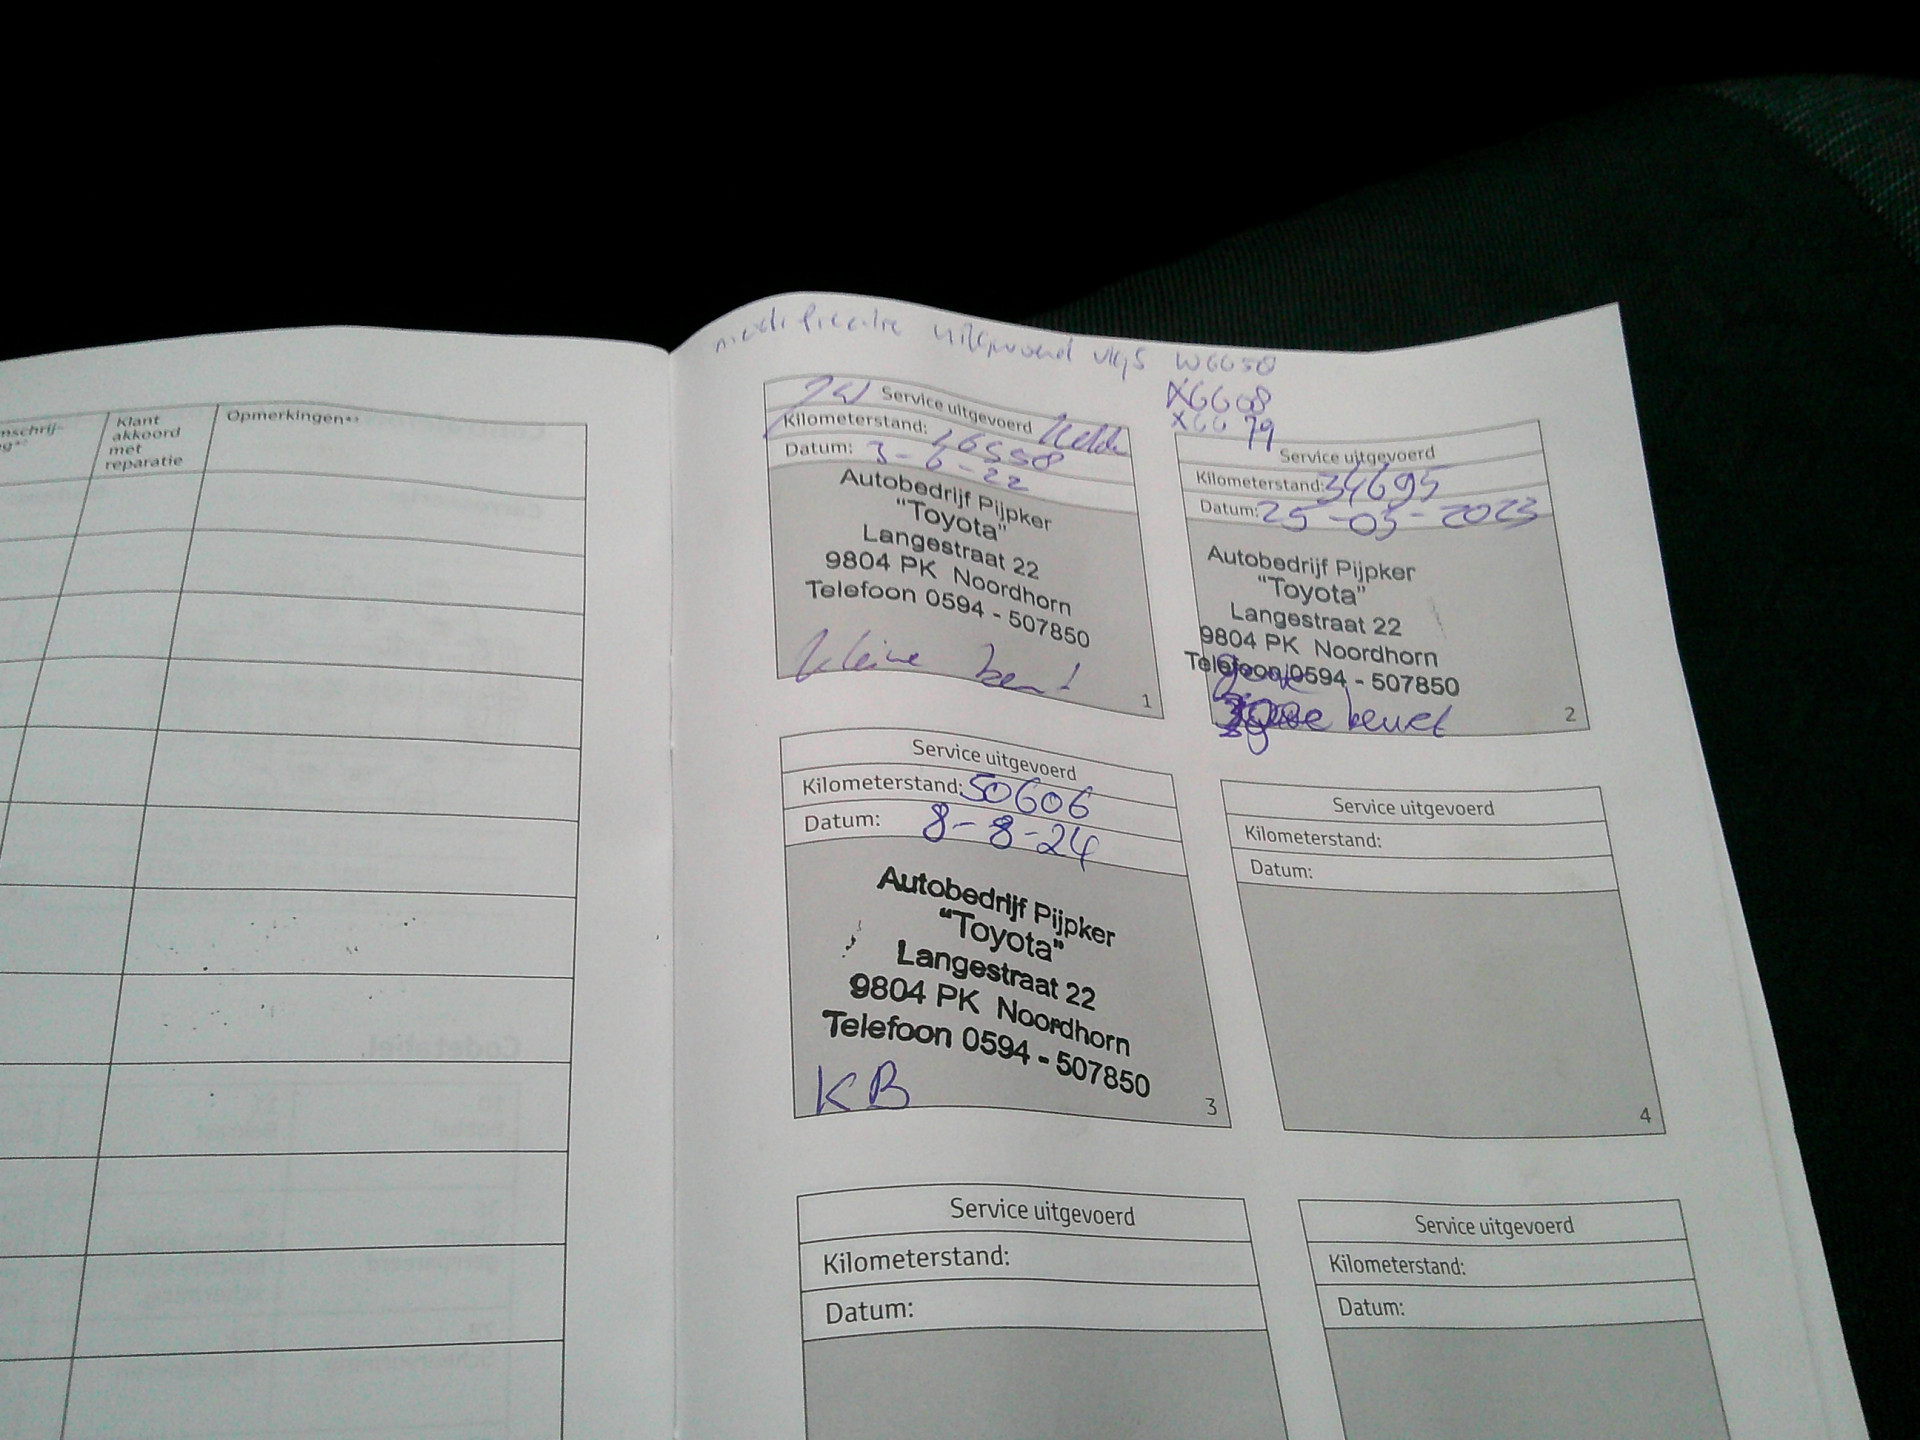 Klant
akkoord
met
reparatie
Opmerkingen
uitgevoerd vlgs W6650
X6608
X6679
Service uitgevoerd
Kilometerstand: 16558
Datum: 3-6-22
Autobedrijf Pijpker
"Toyota"
Langestraat 22
9804 PK Noordhorn
Telefoon 0594 - 507850
kleine beurt
1
Service uitgevoerd
Kilometerstand: 34695
Datum: 25-03-2023
Autobedrijf Pijpker
"Toyota"
Langestraat 22
9804 PK Noordhorn
Telefoon 0594 - 507850
beurt
2
Service uitgevoerd
Kilometerstand: 50606
Datum: 8-8-24
Autobedrijf Pijpker
"Toyota"
Langestraat 22
9804 PK Noordhorn
Telefoon 0594 - 507850
KB
3
Service uitgevoerd
Kilometerstand:
Datum:
4
Service uitgevoerd
Kilometerstand:
Datum:
Service uitgevoerd
Kilometerstand:
Datum: